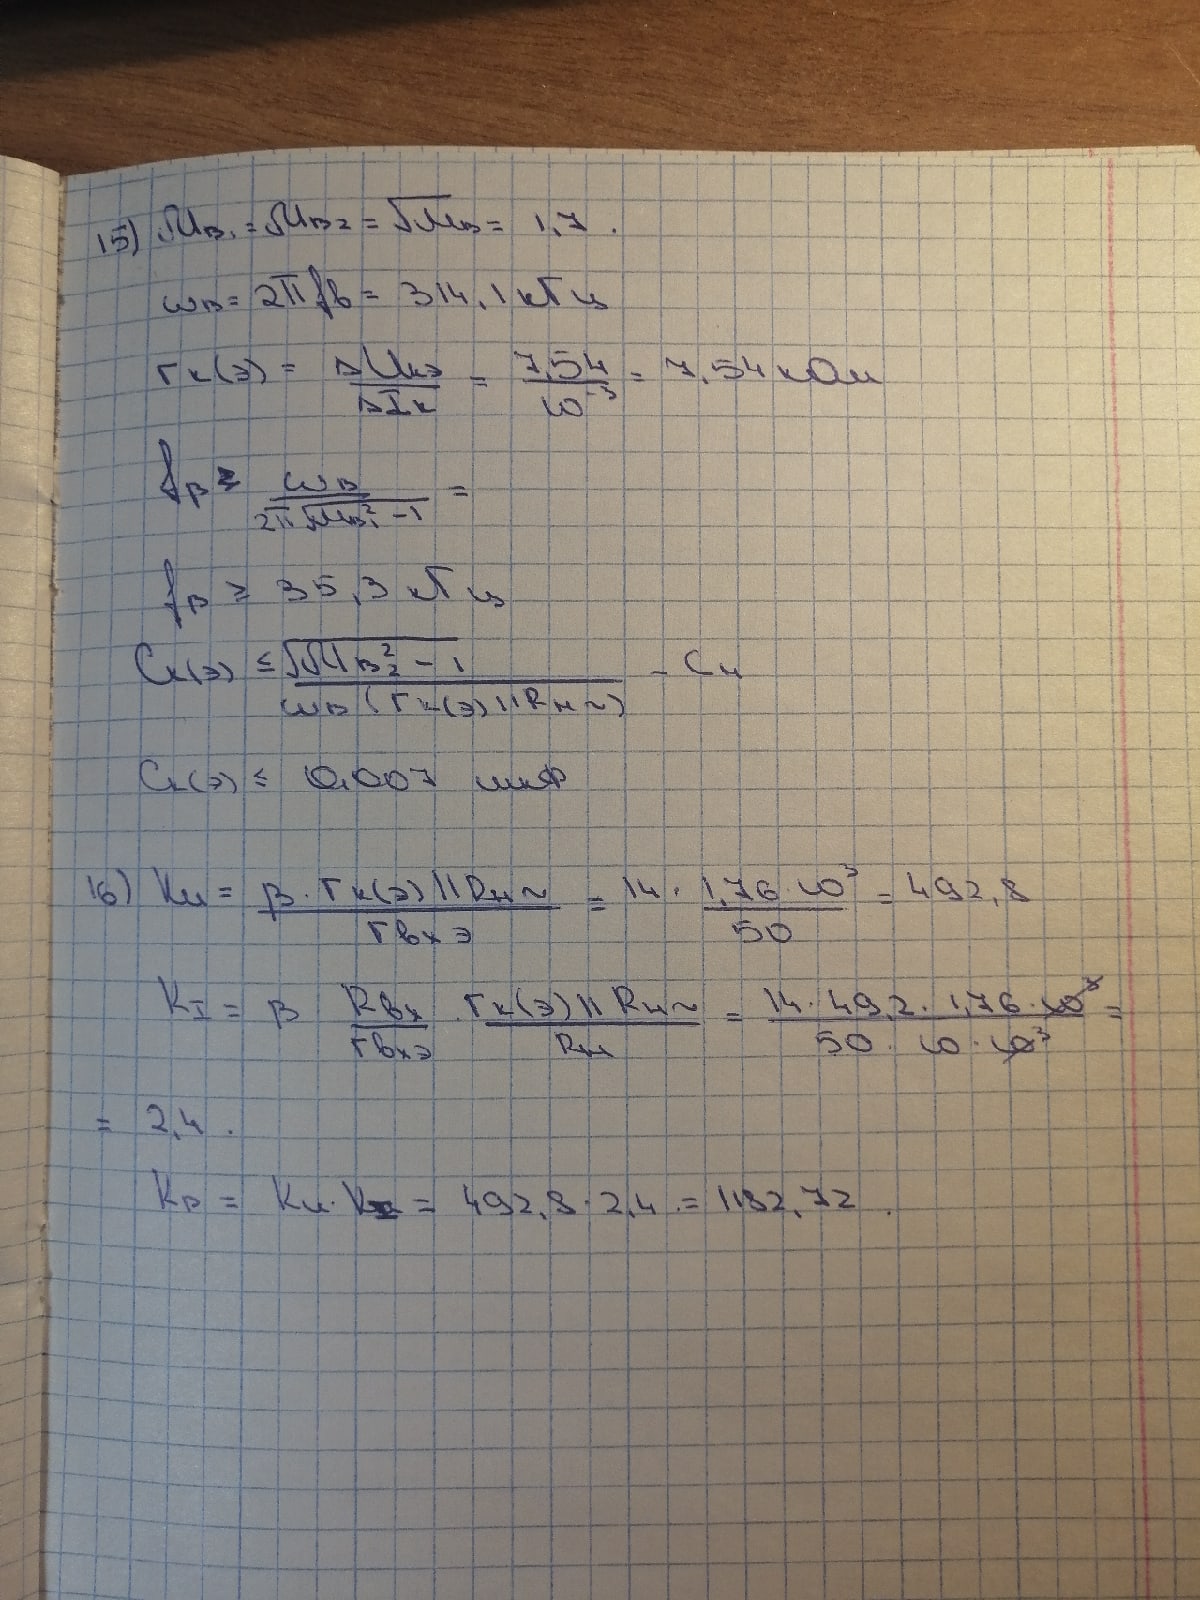 15) Mв₁ = Mв₂ = √Mв = 1,7.
ωв = 2π fв = 314,1 кГц
rк(э) = ΔUкэ / ΔIк = 7,54 / 10⁻³ = 7,54 кОм
fβ ≥ ωв / 2π√Mв₁² - 1 =
fβ ≥ 35,3 кГц
Cк(э) ≤ √Mв₂² - 1 / ωв (rк(э) || Rн~) - Cн
Cк(э) ≤ 0,007 мкФ
16) Ku = β · rк(э) || Rн~ / rвхэ = 14 · 1,76 · 10³ / 50 = 492,8
KI = β Rвх / rвхэ · rк(э) || Rн~ / Rн = 14 · 49,2 · 1,76 · 10³ / 50 · 10 · 10³ =
= 2,4.
Kp = Ku · KI = 492,8 · 2,4 = 1182,72.